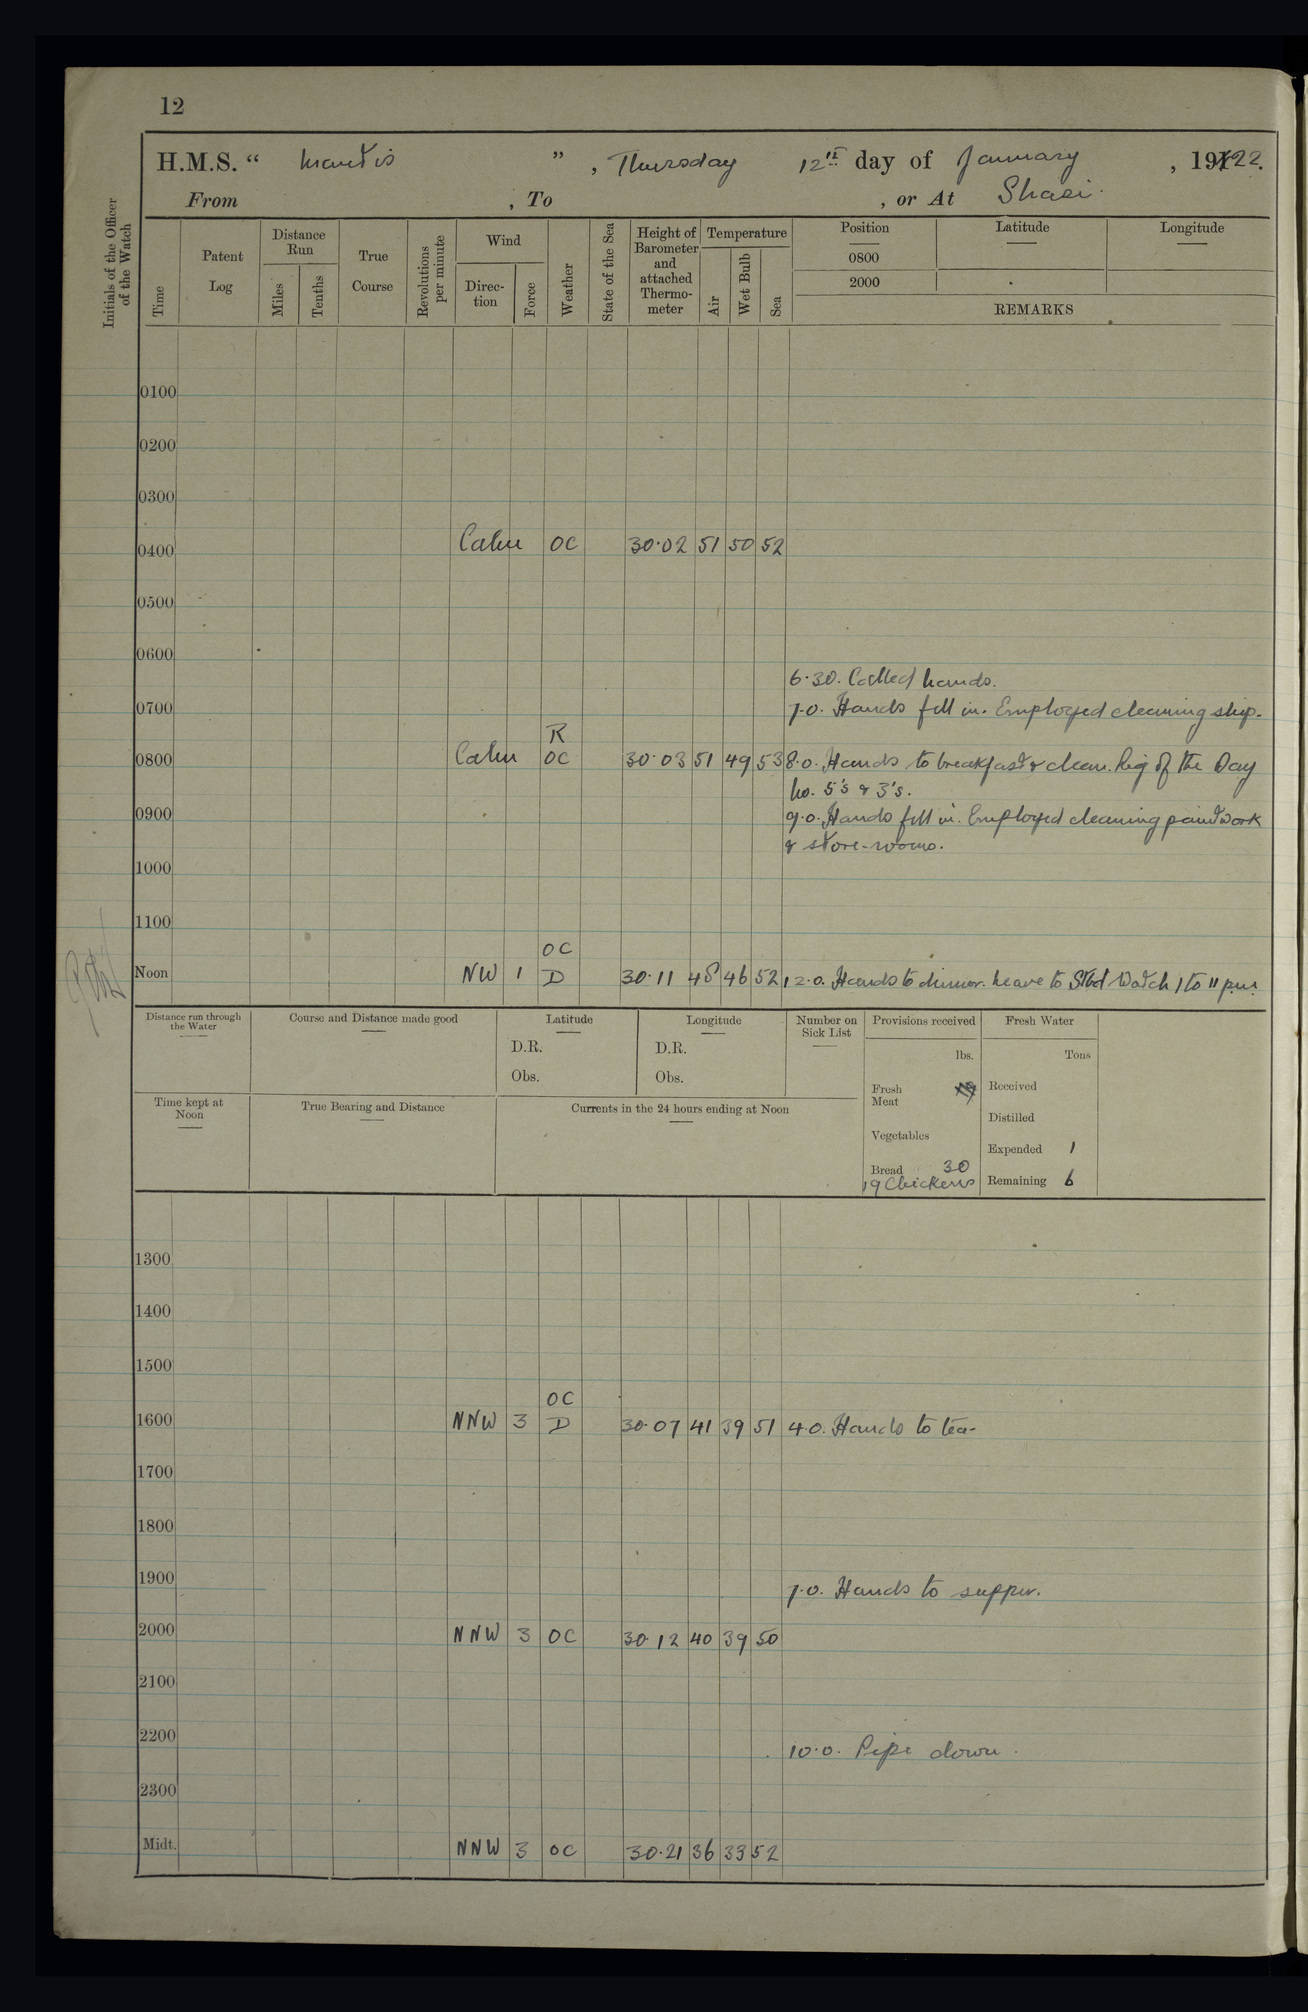 12
H.M.S. “ Mantis ” , Thursday 12th day of January , 1922.
From , To , or At Shasi.
Initials of the Officer of the Watch
Time
Patent Log
Distance Run
Miles
Tenths
True Course
Revolutions per minute
Wind
Direction
Force
Weather
State of the Sea
Height of Barometer and attached Thermometer
Temperature
Air
Wet Bulb
Sea
Position Latitude Longitude
0800
2000
REMARKS
0100
0200
0300
0400 Calm OC 30.02 51 50 52
0500
0600
6.30. Called hands.
0700 7.0. Hands fell in. Employed cleaning ship.
R
0800 Calm OC 30.03 51 49 53 8.0. Hands to breakfast & clean. Rig of the Day
No. 5's & 3's.
0900 9.0. Hands fell in. Employed cleaning paintwork
& store-rooms.
1000
1100
OC
Noon NW 1 D 30.11 48 46 52 12.0. Hands to dinner. Leave to Stbd Watch 1 to 11 p.m.
Distance run through the Water
Course and Distance made good
Latitude
D.R.
Obs.
Longitude
D.R.
Obs.
Number on Sick List
Provisions received
lbs.
Fresh Meat
Vegetables
Bread 30
19 Chickens
Fresh Water
Tons
Received
Distilled
Expended 1
Remaining 6
Time kept at Noon
True Bearing and Distance
Currents in the 24 hours ending at Noon
1300
1400
1500
OC
1600 NNW 3 D 30.07 41 39 51 4.0. Hands to tea-
1700
1800
1900 7.0. Hands to supper.
2000 NNW 3 OC 30.12 40 39 50
2100
2200 10.0. Pipe down.
2300
Midt. NNW 3 OC 30.21 36 33 52